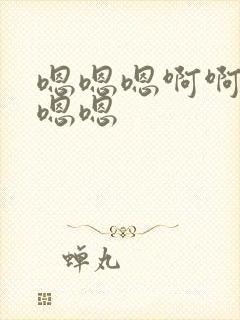 嗯嗯嗯啊啊
嗯嗯
蝉丸